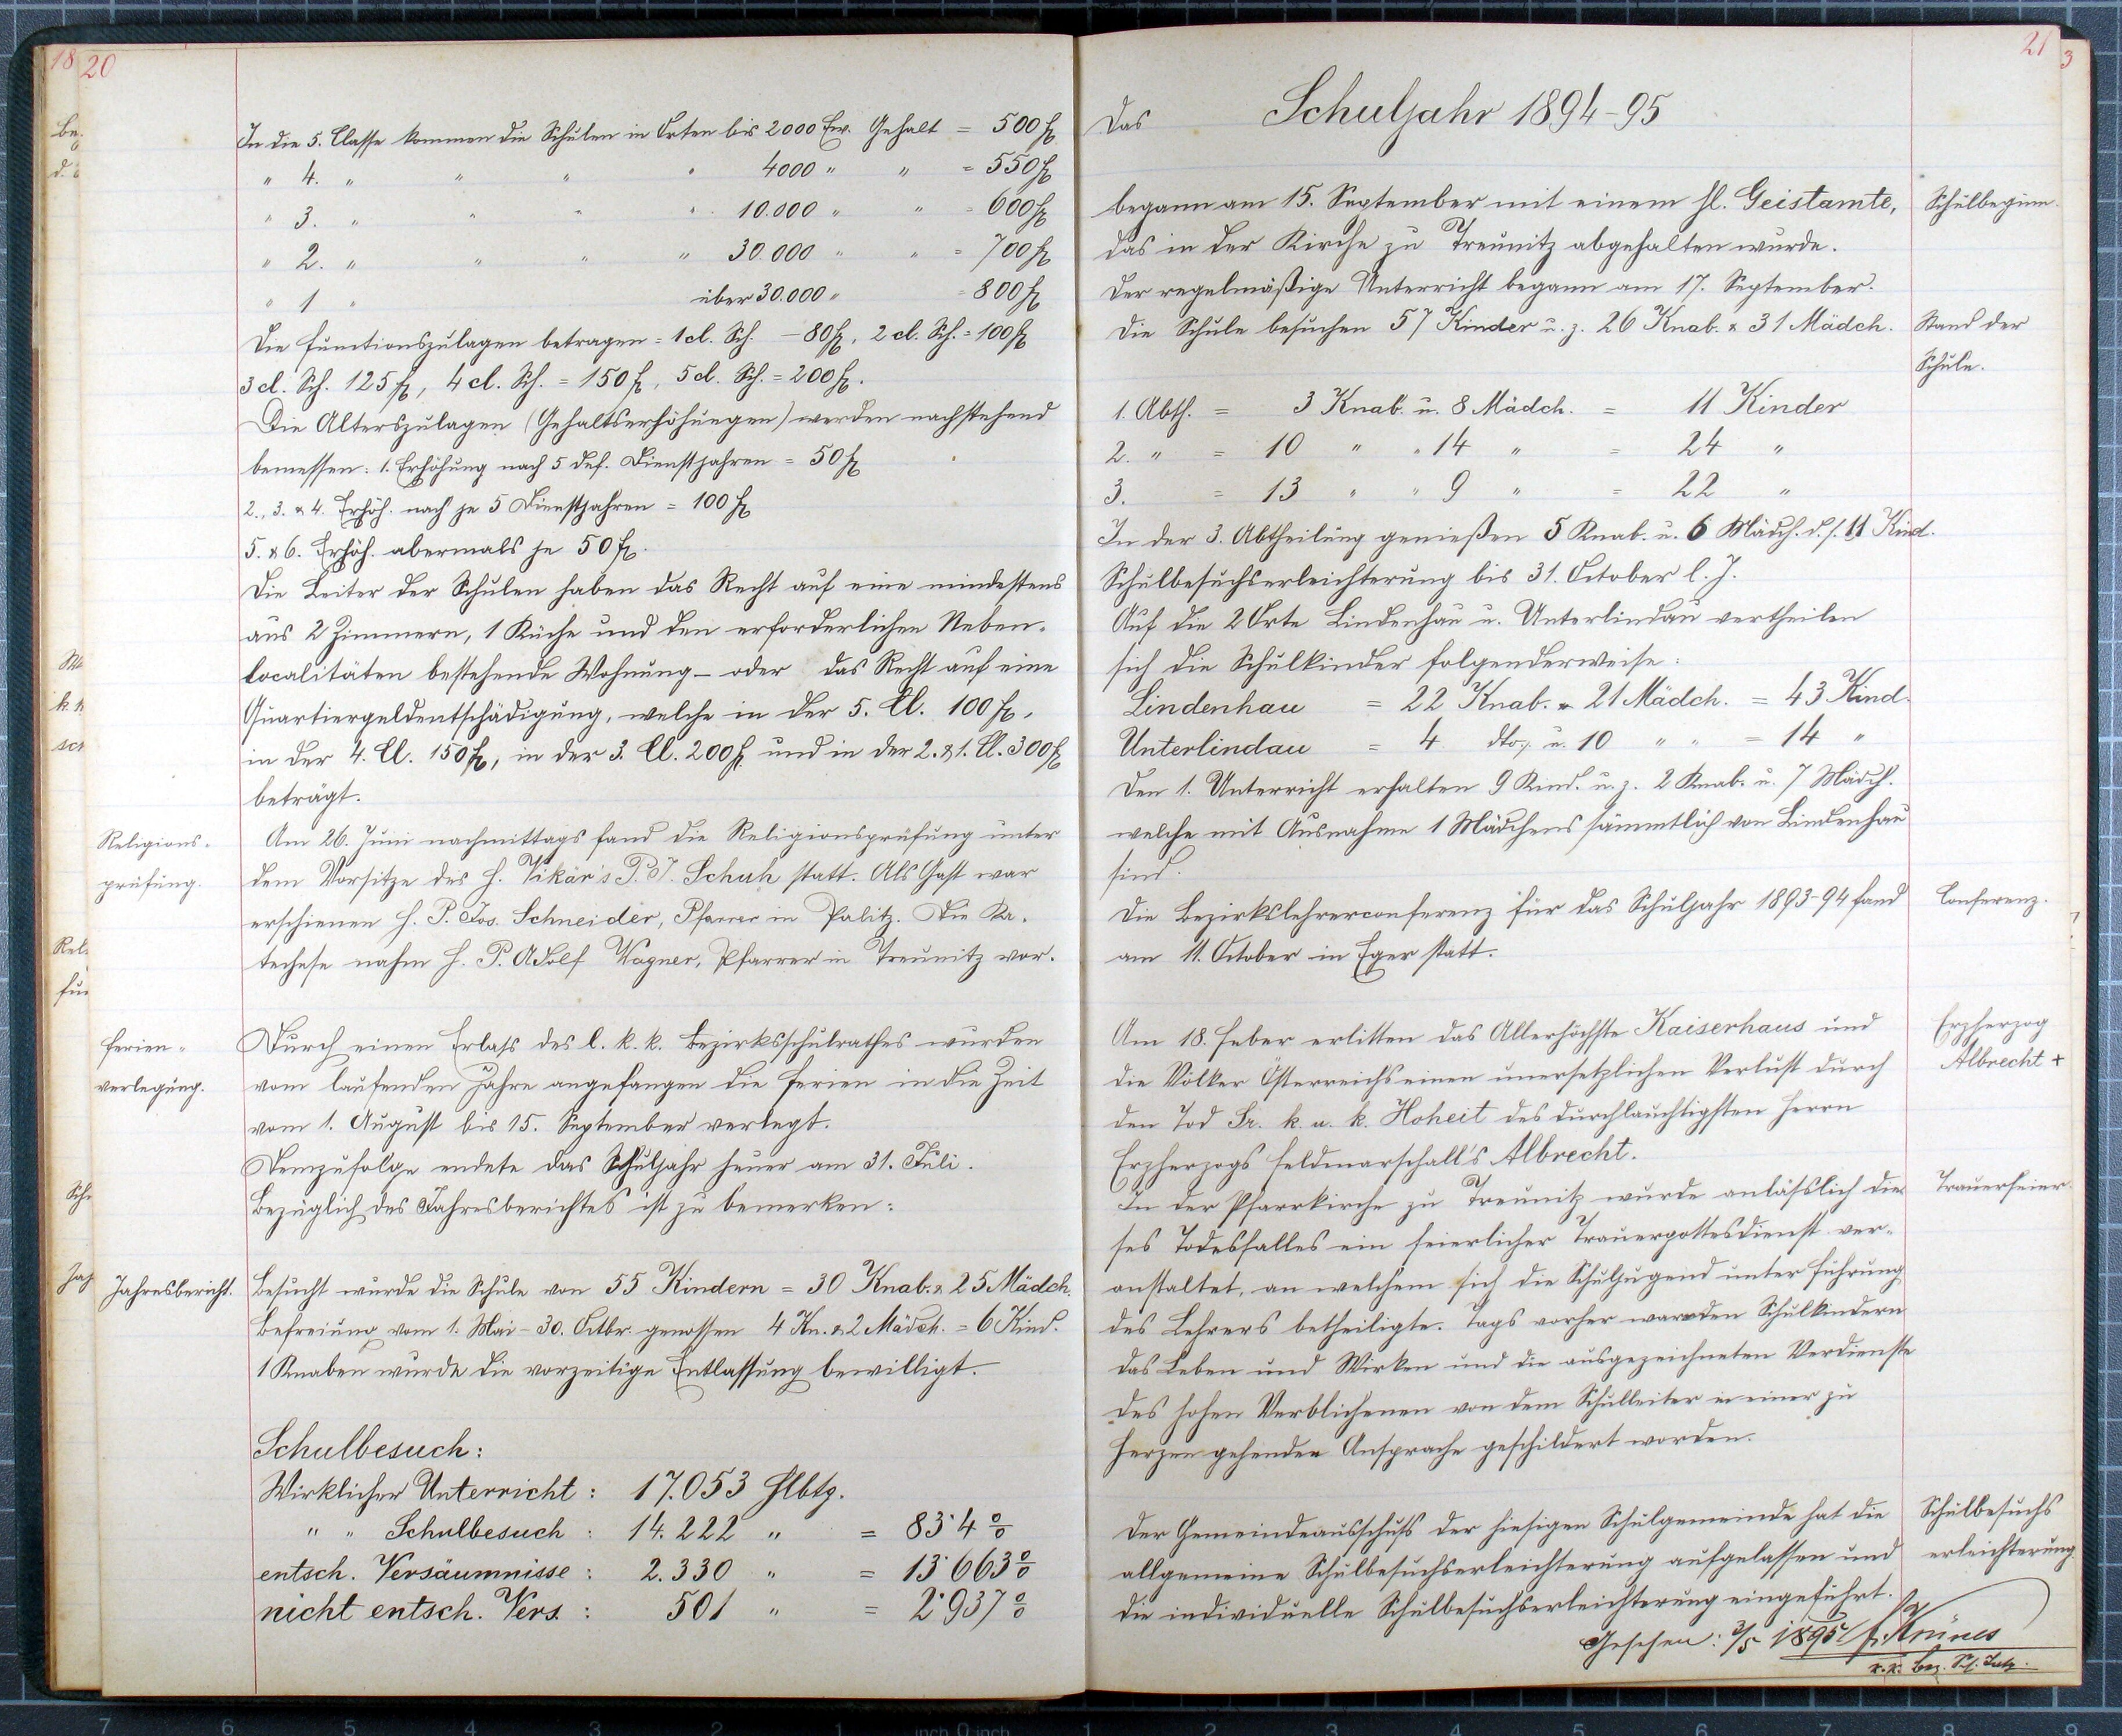 18 20
In die 5. Classe kommen die Schulen in Orten bis 2000 Ew. Gehalt = 500 fl
" 4. " " " " 4000 " " = 550 fl
" 3. " " " " 10.000 " " = 600 fl
" 2. " " " " 30.000 " " = 700 fl
" 1 " über 30.000 " = 800 fl
Die Functionszulagen betragen = 1 cl. Sch. – 80 fl, 2 cl. Sch. = 100 fl
3 cl. Sch. 125 fl, 4 cl. Sch. = 150 fl, 5 cl. Sch. = 200 fl.
Die Alterszulagen (Gehaltserhöhungen) werden nachstehend
bemessen: 1. Erhöhung nach 5 def. Dienstjahren = 50 fl
2., 3. & 4. Erhöh. nach je 5 Dienstjahren = 100 fl
5. & 6. Erhöh. abermals je 50 fl.
Die Leiter der Schulen haben das Recht auf eine mindestens
aus 2 Zimmern, 1 Küche und den erforderlichen Neben-
localitäten bestehende Wohnung – oder das Recht auf eine
Quartiergeldentschädigung, welche in der 5. Cl. 100 fl,
in der 4. Cl. 150 fl, in der 3. Cl. 200 fl und in der 2. & 1. Cl. 300 fl
beträgt.
Religions-
prüfung.
Am 26. Juni nachmittags fand die Religionsprüfung unter
dem Vorsitze des H. Vikär's P. T. Schuh statt. Als Gast war
erschienen H. P. Jos. Schneider, Pfarrer in Palitz. Die Ka-
techese nahm H. P. Adolf Wagner, Pfarrer in Treunitz vor.
Ferien-
verlegung.
Durch einen Erlaß des l. k. k. Bezirksschulrathes wurden
vom laufenden Jahre angefangen die Ferien in die Zeit
vom 1. August bis 15. September verlegt.
Demzufolge endete das Schuljahr heuer am 31. Juli.
Bezüglich des Jahresberichtes ist zu bemerken:
Jahresbericht.
Besucht wurde die Schule von 55 Kindern = 30 Knab. & 25 Mädch.
Befreiung vom 1. Mai – 30. Octbr. genossen 4 Kn. & 2 Mädch. = 6 Kind.
1 Knaben wurde die vorzeitige Entlassung bewilligt.
Schulbesuch:
Wirklicher Unterricht: 17.053 Hlbtg.
" " Schulbesuch: 14.222 " = 83·4 %
entsch. Versäumnisse: 2.330 " = 13·663 %
nicht entsch. Vers.: 501 " = 2·937 %
21 3
Das Schuljahr 1894–95
begann am 15. September mit einem hl. Geistamte,
das in der Kirche zu Treunitz abgehalten wurde.
Schulbeginn.
Der regelmäßige Unterricht begann am 17. September.
Die Schule besuchen 57 Kinder u. z. 26 Knab. & 31 Mädch.
Stand der
Schule.
1. Abth. = 3 Knab. u. 8 Mädch. = 11 Kinder
2. " = 10 " " 14 " = 24 "
3. = 13 " " 9 " = 22 "
In der 3. Abtheilung genießen 5 Knab. u. 6 Mädch. d. s. 11 Kind.
Schulbesuchserleichterung bis 31. October l. J.
Auf die 2 Orte Lindenhau u. Unterlindau vertheilen
sich die Schulkinder folgenderweise:
Lindenhau = 22 Knab. & 21 Mädch. = 43 Kind.
Unterlindau = 4 dto. u. 10 " " = 14 "
Den 1. Unterricht erhalten 9 Kind. u. z. 2 Knab. u. 7 Mädch.
welche mit Ausnahme 1 Mädchens sämmtlich von Lindenhau
sind.
Die Bezirkslehrerconferenz für das Schuljahr 1893–94 fand
am 11. October in Eger statt.
Conferenz.
Am 18. Feber erlitten das Allerhöchste Kaiserhaus und
die Völker Österreichs einen unersetzlichen Verlust durch
den Tod Sr. k. u. k. Hoheit des durchlauchtigsten Herrn
Erzherzogs Feldmarschall's Albrecht.
Erzherzog
Albrecht +
In der Pfarrkirche zu Treunitz wurde anläßlich die-
ses Todesfalles ein feierlicher Trauergottesdienst ver-
anstaltet, an welchem sich die Schuljugend unter Führung
des Lehrers betheiligte. Tags vorher war den Schulkindern
das Leben und Wirken und die ausgezeichneten Verdienste
des hohen Verblichenen von dem Schulleiter in einer zu
Herzen gehenden Ansprache geschildert worden.
Trauerfeier.
Der Gemeindeausschuß der hiesigen Schulgemeinde hat die
allgemeine Schulbesuchserleichterung aufgelassen und
die individuelle Schulbesuchserleichterung eingeführt.
Schulbesuchs
erleichterung.
Gesehen: 3/5 1895
k. k. Bez. Sch. Insp.
7 6 5 4 3 2 1 inch 0 inch 1 2 3 4 5 6 7 8 9